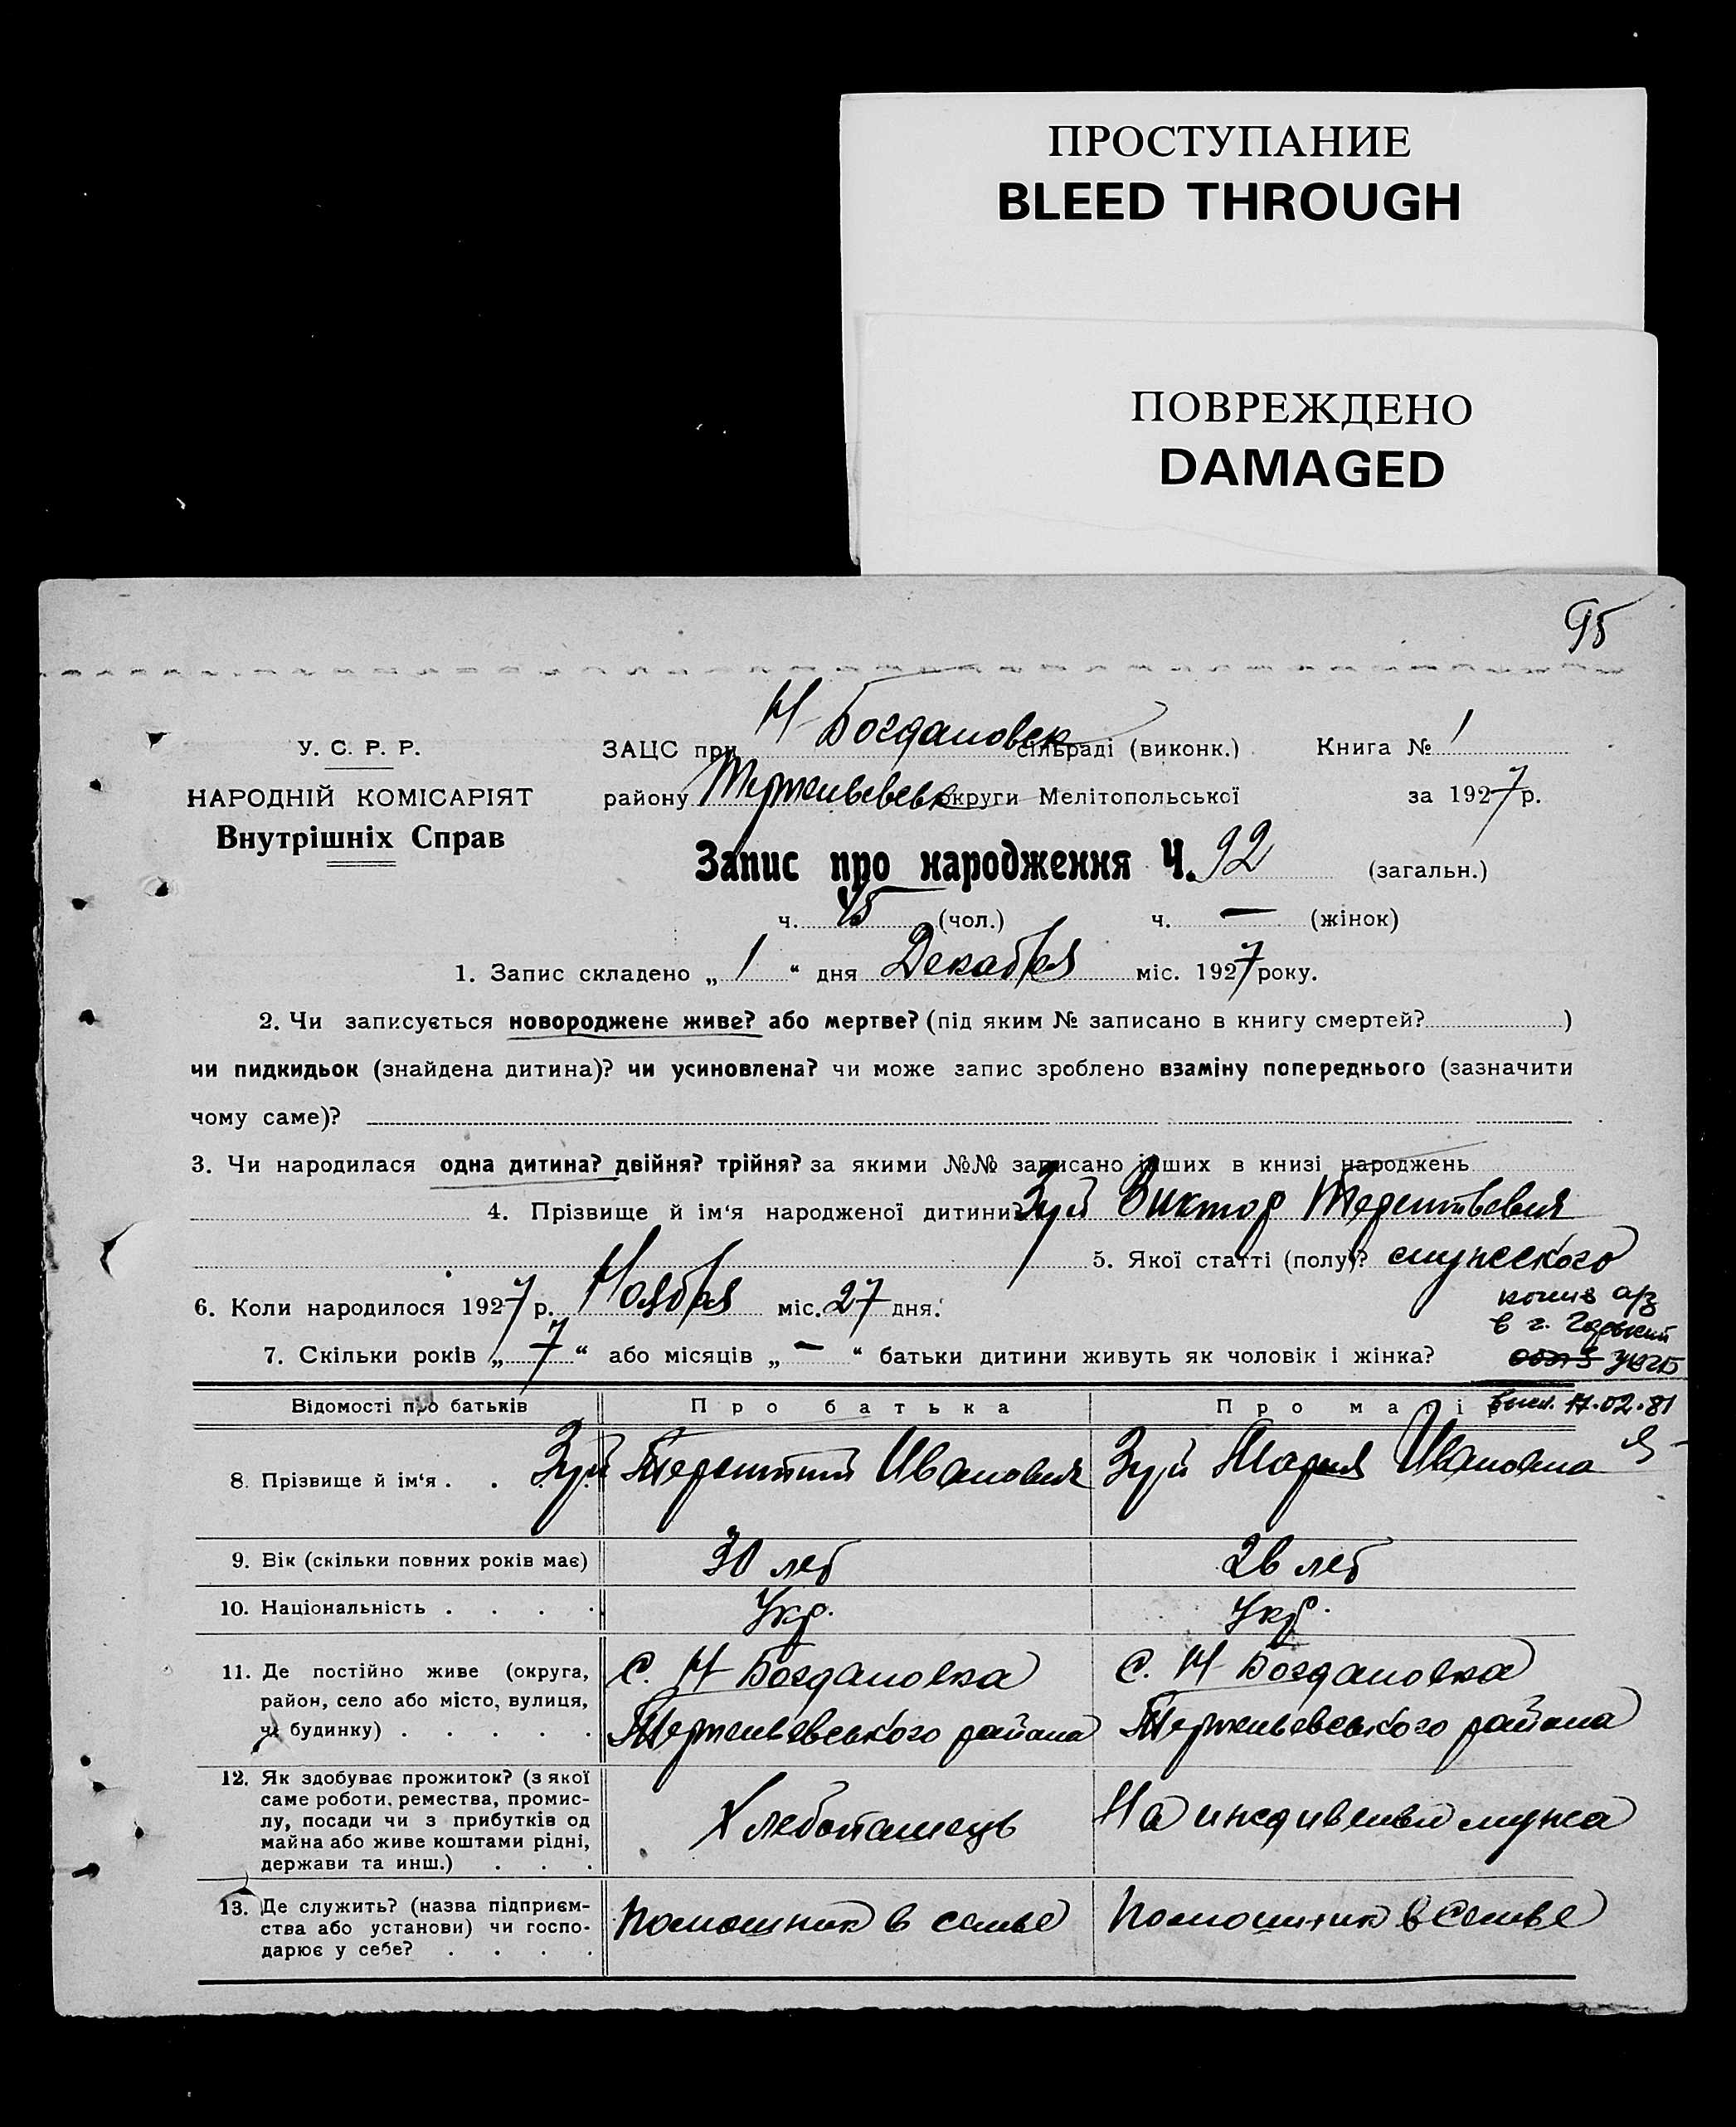 ПРОСТУПАНИЕ
BLEED THROUGH
ПОВРЕЖДЕНО
DAMAGED
95
У. С. Р. Р.
НАРОДНІЙ КОМІСАРІЯТ
Внутрішніх Справ
ЗАЦС при Н-Богдановск сільраді (виконк.) Книга № 1
району округи Мелітопольської за 1927 р.
Запис про народження Ч. 92 (загальн.)
ч. 45 (чол.) ч. — (жінок)
1. Запис складено „ 1 “ дня Декабря міс. 1927 року.
2. Чи записується новороджене живе? або мертве? (під яким № записано в книгу смертей? )
чи пидкидьок (знайдена дитина)? чи усиновлена? чи може запис зроблено взаміну попереднього (зазначити
чому саме)?
3. Чи народилася одна дитина? двійня? трійня? за якими №№ записано інших в книзі народжень
4. Прізвище й ім‘я народженої дитини? Зуй Виктор Терентьевич
5. Якої статті (полу)? мужского
6. Коли народилося 1927 р. Ноября міс. 27 дня.
7. Скільки років „ 7 “ або місяців „ — “ батьки дитини живуть як чоловік і жінка?
копия а/з
в г. Горький
выс. 17.02.81
Відомості про батьків Про батька Про матір
8. Прізвище й ім‘я . . . Зуй Терентий Иванович Зуй Мария Ивановна
9. Вік (скільки повних років має) 30 лет 26 лет
10. Національність . . . . Укр. Укр.
11. Де постійно живе (округа,
район, село або місто, вулиця,
чи будинку) . . . . .
С. Н-Богдановка
района
С. Н-Богдановка
района
12. Як здобуває прожиток? (з якої
саме роботи, ремества, промис-
лу, посади чи з прибутків од
майна або живе коштами рідні,
держави та инш.) . . .
Хлебопашець
На иждивеньи мужа
13. Де служить? (назва підприєм-
ства або установи) чи госпо-
дарює у себе? . . . .
Помошник в семье
Помошник в семье